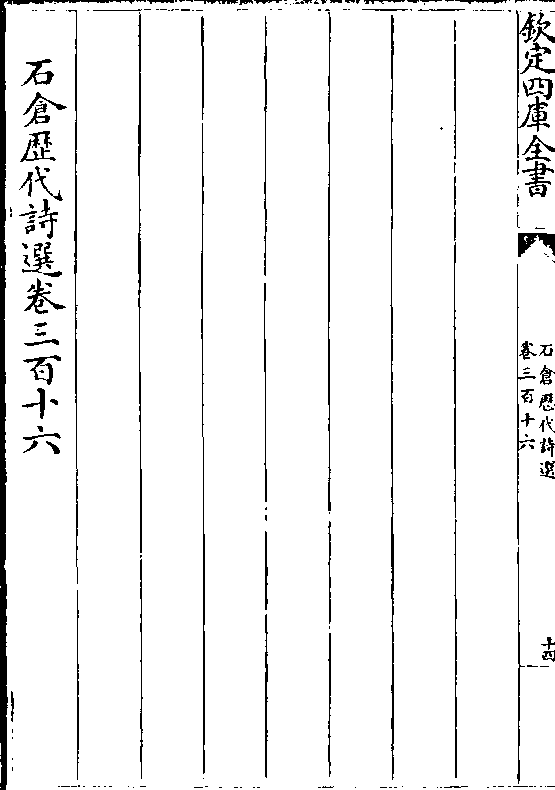 欽定四庫全書
石倉歴代詩選
卷三百十六
十四
石倉歴代詩選卷三百十六